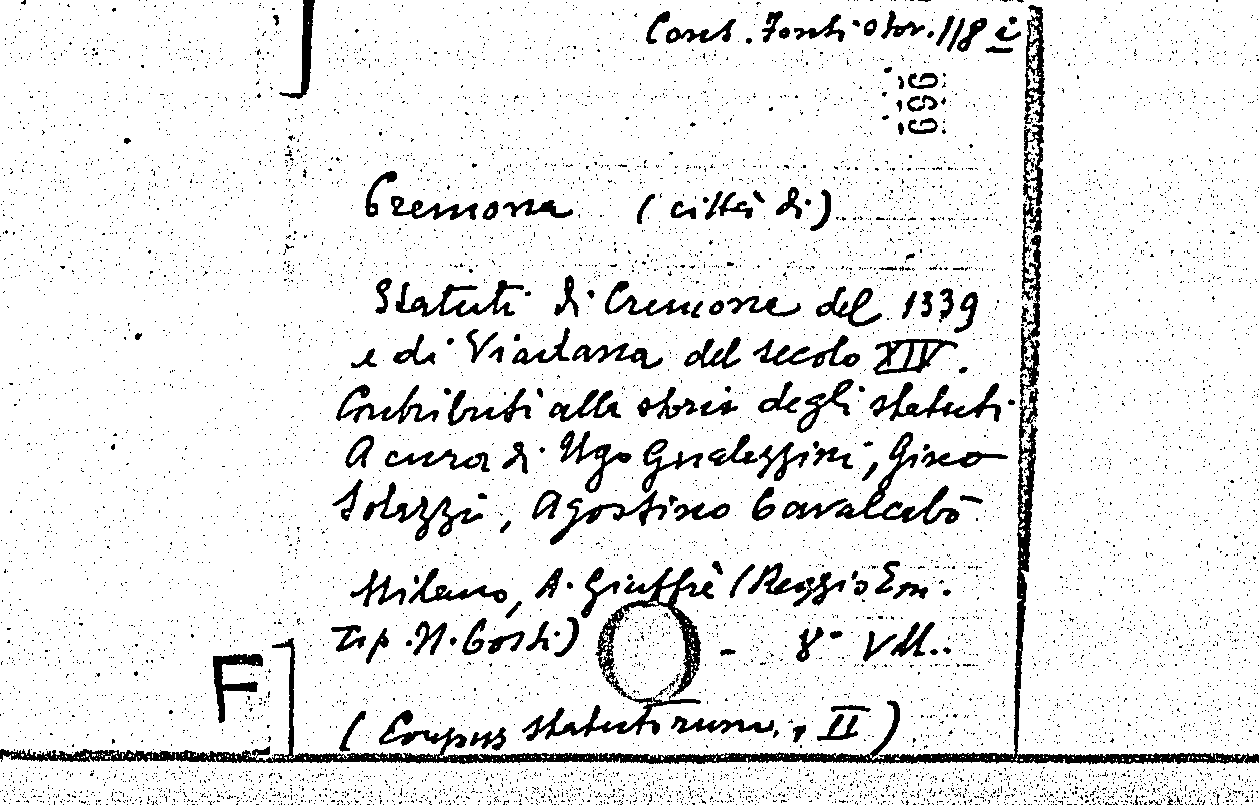 Cons. Fonti stor. 118 i
969
Cremona (città di)
Statuti di Cremona del 1339
e di Viadana del secolo XIV.
Contributi alla storia degli statuti
A cura di Ugo Gualazzini, Gino
Solazzi, Agostino Cavalcabò
Milano, A. Giuffrè (Reggio Em.
Tip. N. Costi) - 8° Vll..
F
(Corpus statutorum, II)